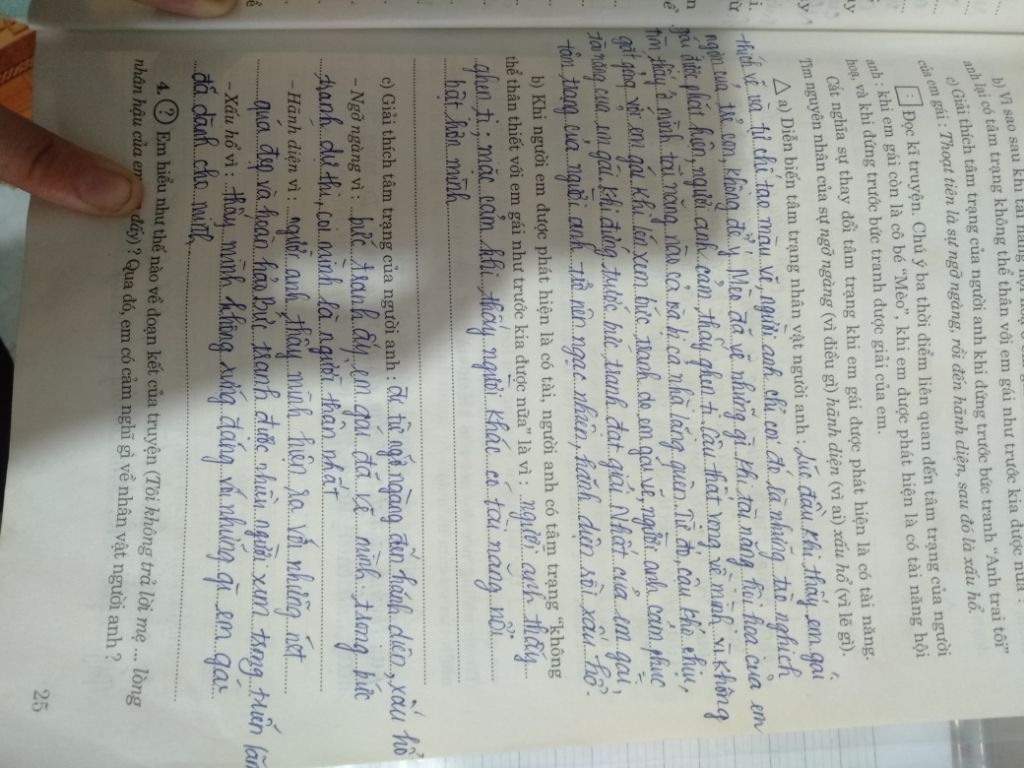 b) Vì sao sau khi tài năng
thể thân với em gái như trước kia được nữa ?
anh lại có tâm trạng không thể thân với em gái như trước kia được nữa ?
c) Giải thích tâm trạng của người anh khi đứng trước bức tranh "Anh trai tôi"
của em gái : Thoạt tiên là sự ngỡ ngàng, rồi đến hãnh diện, sau đó là xấu hổ.
Đọc kĩ truyện. Chú ý ba thời điểm liên quan đến tâm trạng của người
anh : khi em gái còn là cô bé "Mèo", khi em được phát hiện là có tài năng hội
hoạ, và khi đứng trước bức tranh được giải của em.
Cắt nghĩa sự thay đổi tâm trạng khi em gái được phát hiện là có tài năng.
Tìm nguyên nhân của sự ngỡ ngàng (vì điều gì) hãnh diện (vì ai) xấu hổ (vì lẽ gì).
a) Diễn biến tâm trạng nhân vật người anh : Lúc đầu khi thấy em gái
thích vẽ và tự chế tạo màu vẽ, người anh chỉ coi đó là những trò nghịch
ngợm của trẻ con, không để ý Mèo đã vẽ những gì. Khi tài năng hội hoạ của em
gái được phát hiện, người anh cảm thấy ghen tị. Cậu thất vọng về mình vì không
tìm thấy ở mình tài năng nào cả và bị cả nhà lãng quên. Từ đó, cậu khó chịu,
gắt gỏng với em gái. Khi lén xem bức tranh do em gái vẽ, người anh cảm phục
tài năng của em gái. Khi đứng trước bức tranh đạt giải Nhất của em gái,
tâm trạng của người anh trở nên ngạc nhiên, hãnh diện rồi xấu hổ.
b) Khi người em được phát hiện là có tài, người anh có tâm trạng "không
thể thân thiết với em gái như trước kia được nữa" là vì : người anh thấy
ghen tị; mặc cảm khi thấy người khác có tài năng nổi
bật hơn mình
c) Giải thích tâm trạng của người anh : đi từ ngỡ ngàng đến hãnh diện, xấu hổ
- Ngỡ ngàng vì : bức tranh ấy em gái đã vẽ mình trong bức
tranh dự thi, coi mình là người thân nhất
- Hãnh diện vì : người anh thấy mình hiện ra với những nét
quá đẹp và hoàn hảo. Bức tranh được nhiều người xem trong triển lãm
- Xấu hổ vì : thấy mình không xứng đáng với những gì em gái
đã dành cho mình.
4. ? Em hiểu như thế nào về đoạn kết của truyện (Tôi không trả lời mẹ ... lòng
nhân hậu của em đấy) ? Qua đó, em có cảm nghĩ gì về nhân vật người anh ?
25